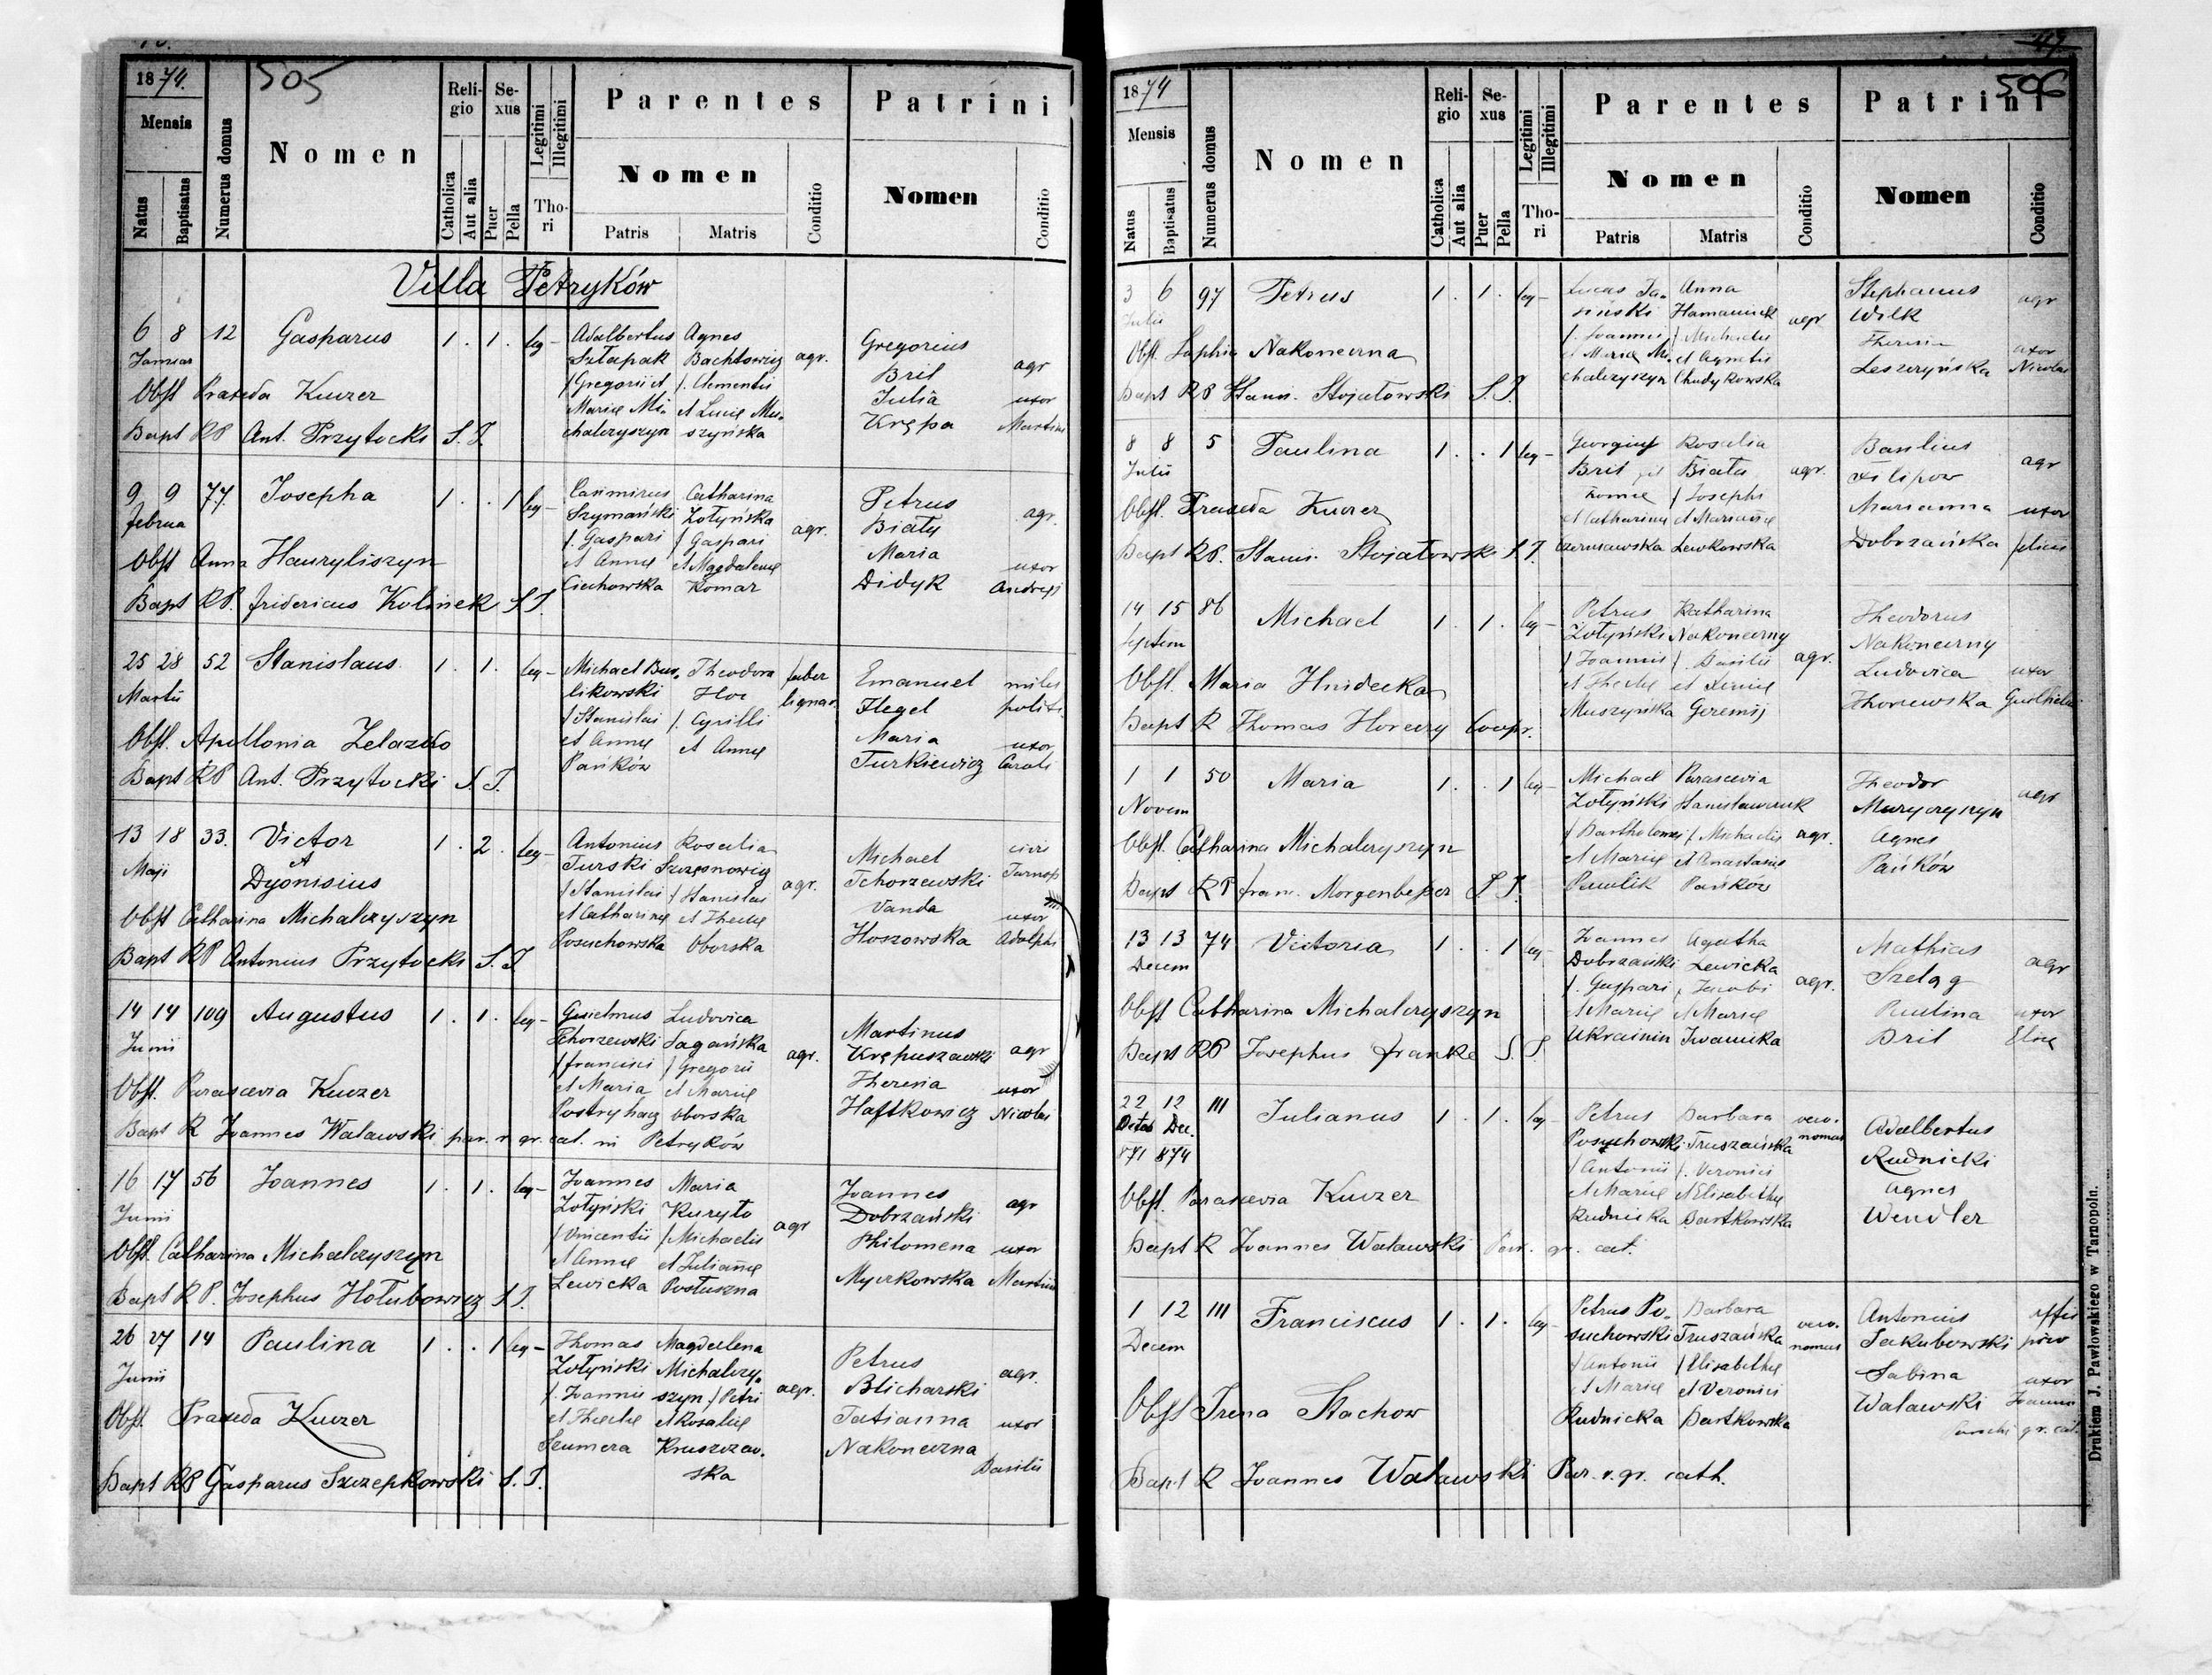 505
1874.
Mensis
Natus
Baptisatus
Numerus domus
Nomen
Religio
Catholica
Aut alia
Sexus
Puer
Pella
Legitimi
Illegitimi
Thori
Parentes
Nomen
Patris
Matris
Conditio
Patrini
Nomen
Conditio
Villa Petryków
6 8 12 Gasparus 1 . 1 . leg-
Januar
Adalbertus Agnes
Sztapak Bachtowicz agr.
/Gregorii et /. Clementis
Mariæ Mi- et Luciæ Mu-
chalczyszyn szyńska
Gregorius
Bril agr
Julia uxor
Krępa Martini
Obst Praxeda Kuczer
Bapt RP Ant. Przytocki S.J.
9 9 77. Josepha 1 . . 1 leg-
Februa
Casimirus Catharina
Szymański Zołyńska
/. Gaspari / Gaspari agr.
et Annæ et Magdalenæ
Ciechowska Komar
Petrus
Biały agr.
Maria uxor
Didyk Andreæ
Obst Anna Hauryliszyn
Bapt RP. Fridericus Kolinek S.J.
25 28 52 Stanislaus 1 . 1 . leg-
Martii
Michael Bur- Theodora faber
likowski Hoc lignar.
/Stanislai /. Cyrilli
et Annæ et Annæ
Pańków
Emanuel miles
Flegel polit.
Maria uxor
Turkiewicz Caroli
Obst. Apollonia Zelazko
Bapt RP Ant. Przytocki S.J.
13 18 33. Victor 1 . 2 . leg-
Maji et
Dyonisius
Antonius Rosalia
Turski Szczęsnowicz
/Stanislai /Stanislai agr.
et Catharinæ et Theclæ
Posuchowska Oborska
Michael civis
Tchorzewski Tarnop
Vanda uxor
Hoszowska Adolphi
Obst Catharina Michalczyszyn
Bapt RP Antonius Przytocki S.J.
14 14 109 Augustus 1 . 1 . leg-
Junii
Guielmus Ludovica
Tchorzewski Sagańska
/Francisci /Gregorii agr.
et Maria et Mariæ
Postryhacz Oborska
Martinus
Krępuszawski agr
Theresia uxor
Haftkowicz Nicolai
Obst. Parascevia Kuczer
Bapt R Joannes Waławski par. r. gr. cat. in Petryków
16 17 56 Joannes 1 . 1 . leg-
Junii
Joannes Maria
Zołyński Kuryło
/Vincentii /Michaelis agr
et Annæ et Julianæ
Lewicka Postuszna
Joannes agr
Dobrzański
Philomena uxor
Myckowska Martini
Obst. Catharina Michalczyszyn
Bapt RP. Josephus Hołubowicz S.J.
26 27 14 Paulina 1 . . 1 leg-
Junii
Thomas Magdalena
Zołyński Michalczy-
/. Joannis szyn /Petri agr.
et Theclæ et Rosaliæ
Szumera Kruszczew-
ska
Petrus
Blicharski agr.
Tatianna uxor
Nakoneczna Basilii
Obst. Praxeda Kuczer
Bapt RP Gasparus Szczepkowski S.J.
506
1874
Mensis
Natus
Baptisatus
Numerus domus
Nomen
Religio
Catholica
Aut alia
Sexus
Puer
Pella
Legitimi
Illegitimi
Thori
Parentes
Nomen
Patris
Matris
Conditio
Patrini
Nomen
Conditio
3 6 97 Petrus 1 . 1 . leg-
Julii
Lucas Ja- Anna
siński Hamaniuk
/. Joannis /Michaelis agr
et Mariæ Mi- et Agnetis
chalczyszyn Chudykowska
Stephanus agr
Wilk
Theresia uxor
Leszczyńska Nicolai
Obst. Sophia Nakoneczna
Bapt RP Stanis. Stojałowski S.J.
8 8 5 Paulina 1 . . 1 leg-
Julii
Georgius Rosalia
Bril Biała agr.
/Josephi
et Catharinæ et Mariannæ
Czerniawska Lewkowska
Basilius agr
Filipow
Marianna uxor
Dobrzańska Felicis
Obst. Praxeda Kuczer
Bapt RP. Stanis. Stojałowski S.J.
14 15 86 Michael 1 . 1 . leg-
Septem
Petrus Katharina
Zołyński Nakoneczny
/Joannis /. Basilii agr.
et Theclæ et Xeniæ
Muszyńska Geremij
Theodorus
Nakoneczny
Ludovica uxor
Thorzewska Guilhelmi
Obst. Maria Hnidecka
Bapt R Thomas Horaczy Coopr.
1 1 50 Maria 1 . . 1 leg-
Novem
Michael Parascevia
Zołyński Stanisławczuk
/Bartholomei /Michaelis agr.
et Mariæ et Anastasiæ
Pawlik Pańków
Theodor agr
Muryczyszyn
Agnes
Pańków
Obst. Catharina Michalczyszyn
Bapt RP Franc. Morgenbesser S.J.
13 13 74 Victoria 1 . . 1 leg
Decem
Joannes Agatha
Dobrzański Lewicka
/. Gaspari /Jacobi agr.
et Mariæ et Mariæ
Ukrainin Iwanicka
Mathias agr
Szeląg
Paulina uxor
Bril Eliæ
Obst Catharina Michalczyszyn
Bapt RP Josephus Franke S.J.
22 12 111 Julianus 1 . 1 . leg
Dec.
871 874
Petrus Barbara oeco-
Posuchowski Truszańska nomus
/Antonii /. Veronici
et Mariæ et Elisabethæ
Rudnicka Bartkowska
Adalbertus
Rudnicki
Agnes
Wendler
Obst. Parascevia Kuczer
Bapt R Joannes Waławski Par. gr. cat.
1 12 111 Franciscus 1 . 1 . leg
Decem
Petrus Po- Barbara oeco-
suchowski Truszańska nomus
/Antonii /Elisabethæ
et Mariæ et Veronici
Rudnicka Bartkowska
Antonius
Jakubowski
Sabina uxor
Waławski Joannis
Parochi gr. cat.
Obst Irena Stachow
Bapt R Joannes Waławski Par. r. gr. cath.
Drukiem J. Pawłowskiego w Tarnopolu.